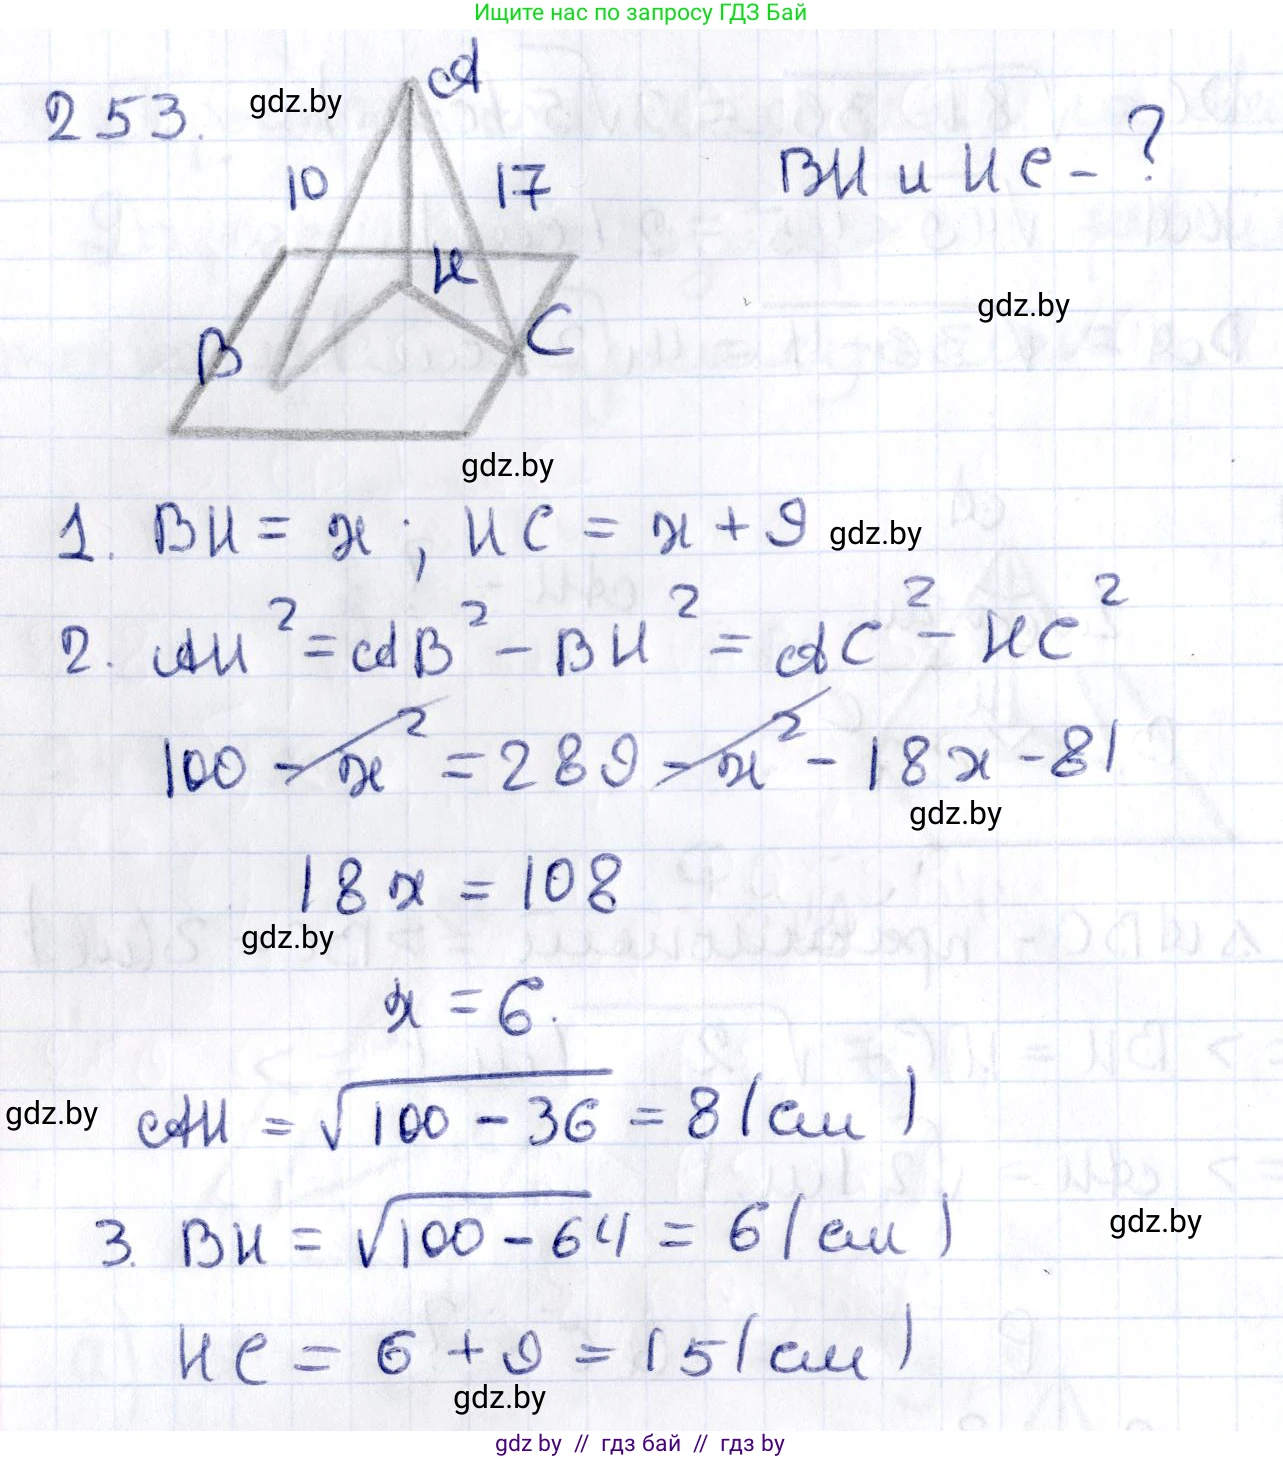 Ищите нас по запросу ГДЗ Бай
253.
gdz.by
A
10
17
BH и HC - ?
H
B
C
gdz.by
gdz.by
1. BH = x ; HC = x + 9
gdz.by
2. AH² = AB² - BH² = AC² - HC²
100 - x² = 289 - x² - 18x - 81
gdz.by
18x = 108
gdz.by
x = 6.
gdz.by
AH = √100 - 36 = 8 (см)
3. BH = √100 - 64 = 6 (см)
gdz.by
HC = 6 + 9 = 15 (см)
gdz.by
gdz by // гдз бай // гдз by